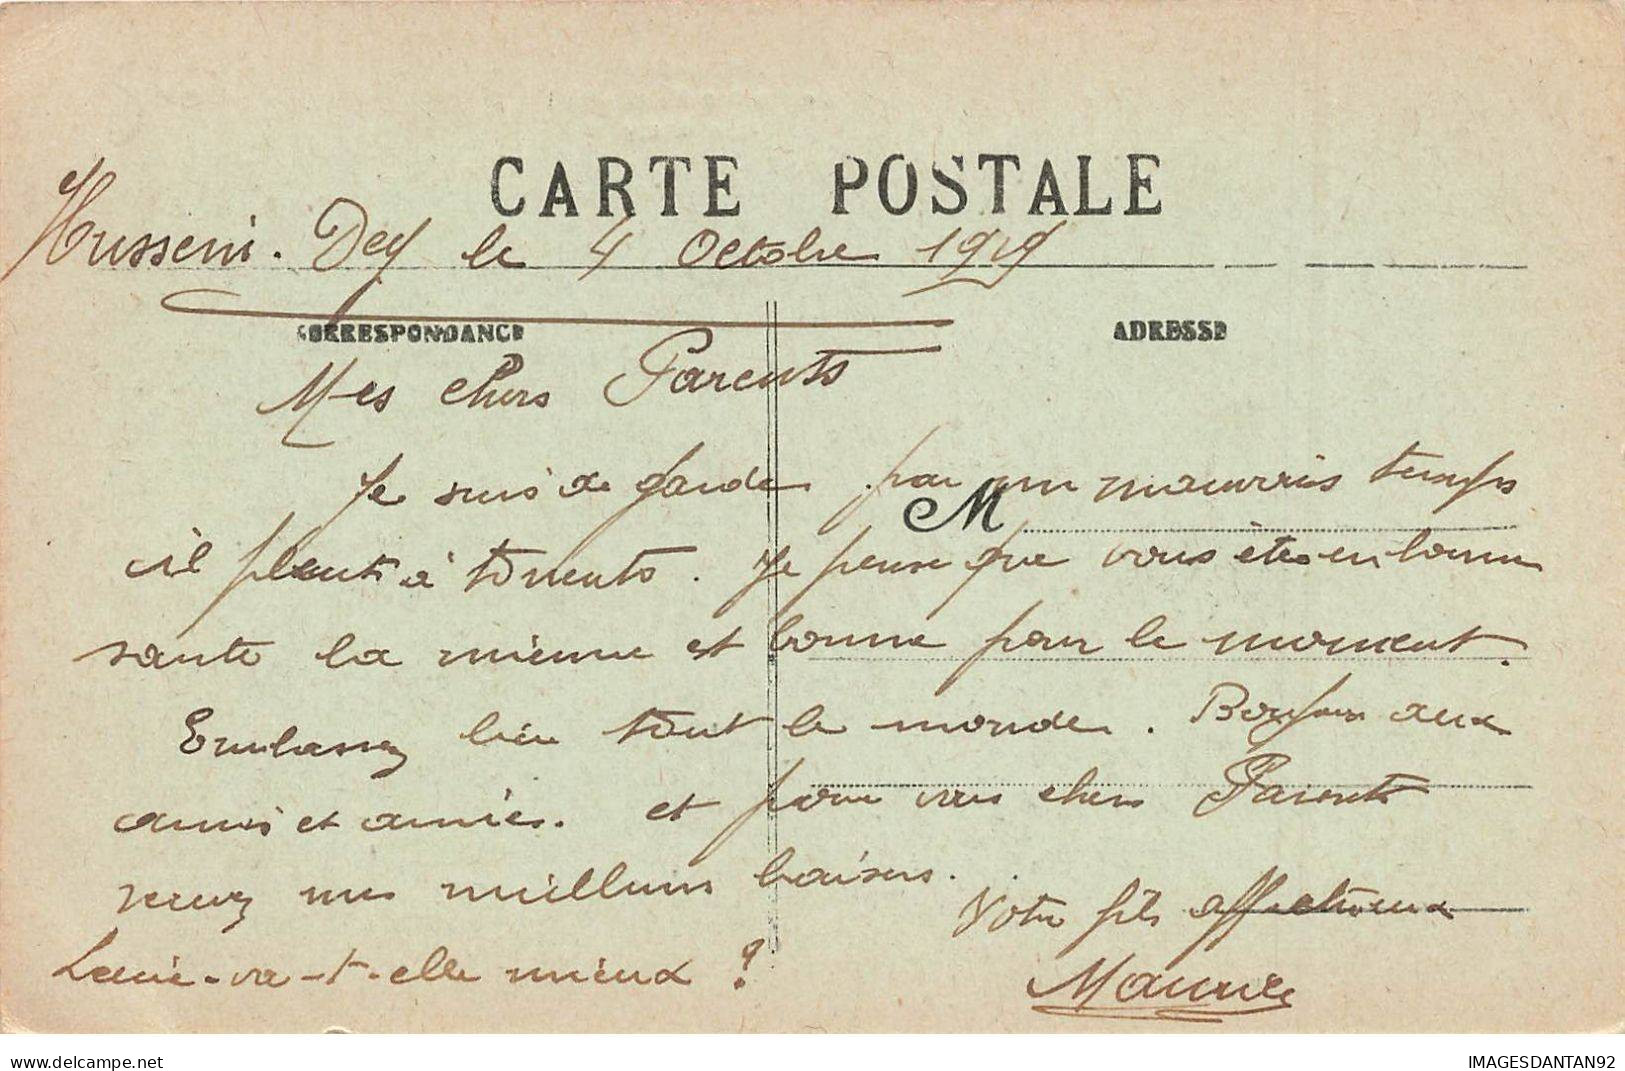 CARTE POSTALE
Husseni. Dey le 4 Octobre 1919
CORRESPONDANCE
ADRESSE
Mes chers Parents
Je suis de garde par un mauvais temps
M
il pleut à torrents. Je pense que vous êtes en bonne
santé la mienne est bonne pour le moment.
Embrassez bien tout le monde. Bonjour aux
amis et amies. et pour vous chers Parents
recevez mes meilleurs baisers.
Votre fils affectioneux
va-t-elle mieux ?
Maurice
delcampe.net
IMAGESDANTAN92